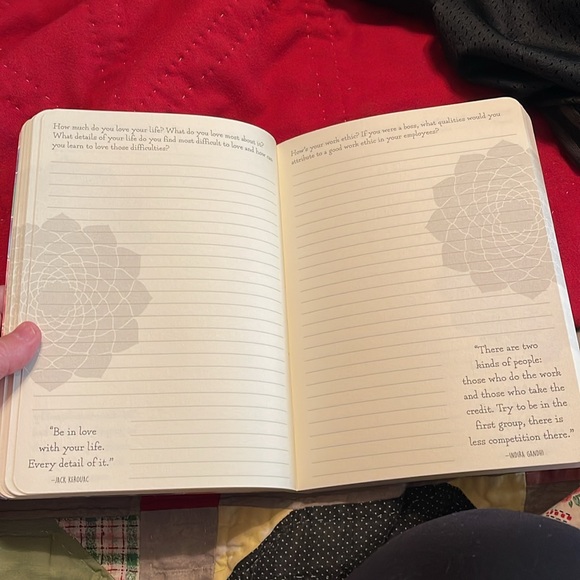 How much do you love your life? What do you love most about it?
What details of your life do you find most difficult to love and how can
you learn to love those difficulties?
"Be in love
with your life.
Every detail of it."
-JACK KEROUAC
How's your work ethic? If you were a boss, what qualities would you
attribute to a good work ethic in your employees?
"There are two
kinds of people:
those who do the work
and those who take the
credit. Try to be in the
first group, there is
less competition there."
-INDIRA GANDHI